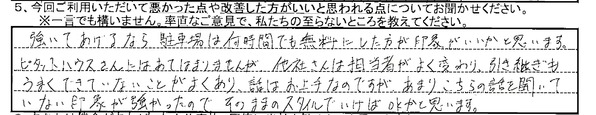 5、今回ご利用いただいて悪かった点や改善した方がいいと思われる点についてお聞かせください。
※一言でも構いません。率直なご意見で、私たちの至らないところを教えてください。
強いてあげるなら 駐車場は何時間でも無料にした方が印象がいいかと思います。
ピタットハウスさんにはあてはまりませんが、他社さんは担当者がよく変わり、引き継ぎも
うまくできていないことがよくあり、話はお上手なのですが、あまりこちらの話を聞いて
いない印象が強かったので そのままのスタイルでいけばOKかと思います。